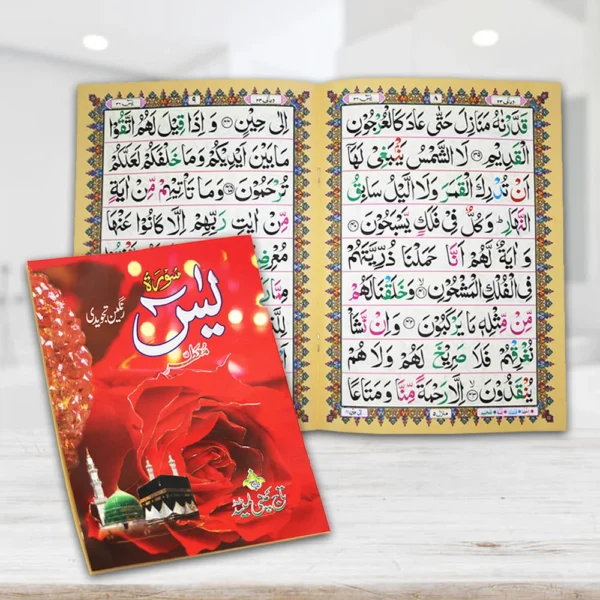 ٨
قَدَّرْنٰهُ مَنَازِلَ حَتّٰى عَادَ كَالْعُرْجُوْنِ
الْقَدِيْمِ ﴿٣٩﴾ لَا الشَّمْسُ يَنْۢبَغِيْ لَهَاۤ
اَنْ تُدْرِكَ الْقَمَرَ وَلَا الَّيْلُ سَابِقُ
النَّهَارِ ؕ وَكُلٌّ فِيْ فَلَكٍ يَّسْبَحُوْنَ ﴿٤٠﴾
وَاٰيَةٌ لَّهُمْ اَنَّا حَمَلْنَا ذُرِّيَّتَهُمْ
فِي الْفُلْكِ الْمَشْحُوْنِ ﴿٤١﴾ وَخَلَقْنَا لَهُمْ
مِّنْ مِّثْلِهٖ مَا يَرْكَبُوْنَ ﴿٤٢﴾ وَاِنْ نَّشَاْ
نُغْرِقْهُمْ فَلَا صَرِيْخَ لَهُمْ وَلَا هُمْ
يُنْقَذُوْنَ ﴿٤٣﴾ اِلَّا رَحْمَةً مِّنَّا وَمَتَاعًا
٩
اِلٰى حِيْنٍ ﴿٤٤﴾ وَاِذَا قِيْلَ لَهُمُ اتَّقُوْا
مَا بَيْنَ اَيْدِيْكُمْ وَمَا خَلْفَكُمْ لَعَلَّكُمْ
تُرْحَمُوْنَ ﴿٤٥﴾ وَمَا تَاْتِيْهِمْ مِّنْ اٰيَةٍ
مِّنْ اٰيٰتِ رَبِّهِمْ اِلَّا كَانُوْا عَنْهَا
سورۃ
یٰسٓ
رنگین، تجویدی
تاج کمپنی لمیٹڈ